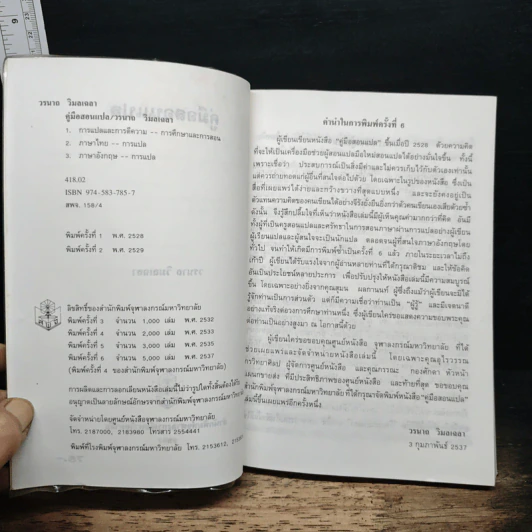 วรนาถ วิมลเฉลา
คู่มือสอนแปล/วรนาถ วิมลเฉลา
1. การแปลและการตีความ -- การศึกษาและการสอน
2. ภาษาไทย -- การแปล
3. ภาษาอังกฤษ -- การแปล
418.02
ISBN 974-583-785-7
สพจ. 158/4
พิมพ์ครั้งที่ 1 พ.ศ. 2528
พิมพ์ครั้งที่ 2 พ.ศ. 2529
ลิขสิทธิ์ของสำนักพิมพ์จุฬาลงกรณ์มหาวิทยาลัย
พิมพ์ครั้งที่ 3 จำนวน 1,000 เล่ม พ.ศ. 2532
พิมพ์ครั้งที่ 4 จำนวน 2,000 เล่ม พ.ศ. 2533
พิมพ์ครั้งที่ 5 จำนวน 3,000 เล่ม พ.ศ. 2535
พิมพ์ครั้งที่ 6 จำนวน 5,000 เล่ม พ.ศ. 2537
(พิมพ์ครั้งที่ 4 ของสำนักพิมพ์จุฬาลงกรณ์มหาวิทยาลัย)
การผลิตและการลอกเลียนหนังสือเล่มนี้ไม่ว่ารูปใดทั้งสิ้นต้องได้รับ
อนุญาตเป็นลายลักษณ์อักษรจากสำนักพิมพ์จุฬาลงกรณ์มหาวิทยาลัย
จัดจำหน่ายโดยศูนย์หนังสือจุฬาลงกรณ์มหาวิทยาลัย
โทร. 2187000, 2183980 โทรสาร 2554441
พิมพ์ที่โรงพิมพ์จุฬาลงกรณ์มหาวิทยาลัย โทร. 2153612,
คำนำในการพิมพ์ครั้งที่ 6
ผู้เขียนเขียนหนังสือ "คู่มือสอนแปล" ขึ้นเมื่อปี 2528 ด้วยความคิด
ที่จะให้เป็นเครื่องมือช่วยผู้สอนแปลมือใหม่สอนแปลได้อย่างมั่นใจขึ้น ทั้งนี้
เพราะเชื่อว่า ประสบการณ์เป็นสิ่งมีค่าและไม่ควรเก็บไว้กับตัวเองเท่านั้น
แต่ควรถ่ายทอดแก่ผู้อื่นที่สนใจต่อไปด้วย โดยเฉพาะในรูปของหนังสือ ซึ่งเป็น
สื่อที่เผยแพร่ได้ง่ายและกว้างขวางที่สุดแบบหนึ่ง และจะยังคงอยู่เป็น
ตัวแทนความคิดของคนเขียนได้อย่างจีรังยั่งยืนยิ่งกว่าตัวคนเขียนเองเสียด้วยซ้ำ
ดังนั้น จึงรู้สึกปลื้มใจที่เห็นว่าหนังสือเล่มนี้มีผู้เห็นคุณค่ามากกว่าที่คิด อันมี
ทั้งผู้ที่เป็นครูสอนแปลและครูสอนภาษาผ่านการแปลอย่าง
ผู้เรียนแปลและผู้สนใจจะเป็นนักแปล ตลอดจนผู้ที่สนใจภาษาอังกฤษโดย
ทั่วไป จนทำให้เกิดมีการพิมพ์ซ้ำเป็นครั้งที่ 6 แล้ว ภายในระยะเวลาไม่ถึง
เก้าปี ผู้เขียนได้รับแรงใจจากผู้อ่านหลายท่านที่ได้กรุณาติชม และให้ข้อคิด
อันเป็นประโยชน์หลายประการ เพื่อปรับปรุงให้หนังสือเล่มนี้มีความสมบูรณ์
ขึ้น โดยเฉพาะอย่างยิ่งจากคุณ
รู้จักท่านเป็นการส่วนตัว แต่ก็มีความเชื่อว่าท่านเป็น "ผู้รู้" และมีเจตนาดี
อย่างแท้จริงต่อวงการศึกษาท่านหนึ่ง ซึ่งผู้เขียนใคร่ขอแสดงความขอบพระคุณ
ต่อท่านเป็นอย่างสูงมา ณ โอกาสนี้ด้วย
ผู้เขียนใคร่ขอขอบคุณศูนย์หนังสือ จุฬาลงกรณ์มหาวิทยาลัย ที่ได้
ช่วยเผยแพร่และจัดจำหน่ายหนังสือเล่มนี้ โดยเฉพาะ
ผู้จัดการศูนย์หนังสือ และคุณ กองศักดา หัวหน้า
ที่มีประสิทธิภาพของศูนย์หนังสือ และท้ายที่สุด ขอขอบคุณ
สำนักพิมพ์จุฬาลงกรณ์มหาวิทยาลัย ที่ได้กรุณาจัดพิมพ์หนังสือ "คู่มือสอนแปล"
นี้ขึ้นเผยแพร่อีกครั้งหนึ่ง
วรนาถ วิมลเฉลา
3 กุมภาพันธ์ 2537